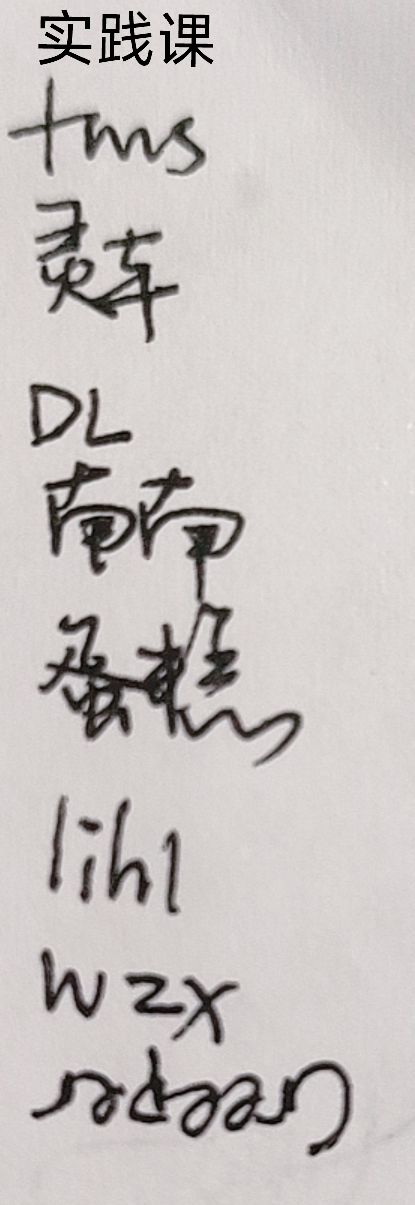 实践课
tms
灵车
DL
南南
蛋糕
lihl
wzx